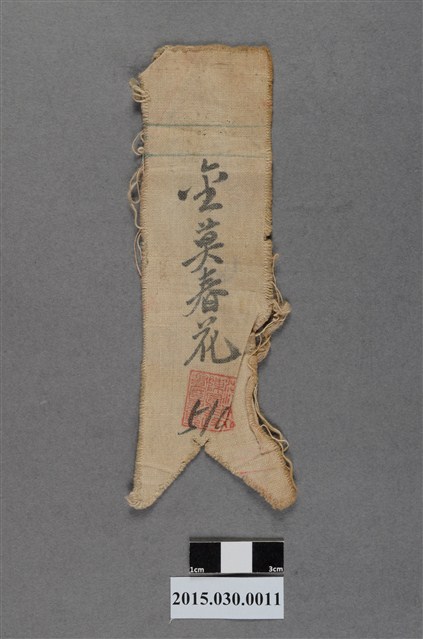 金莫春花
510
1cm 3cm
2015.030.0011